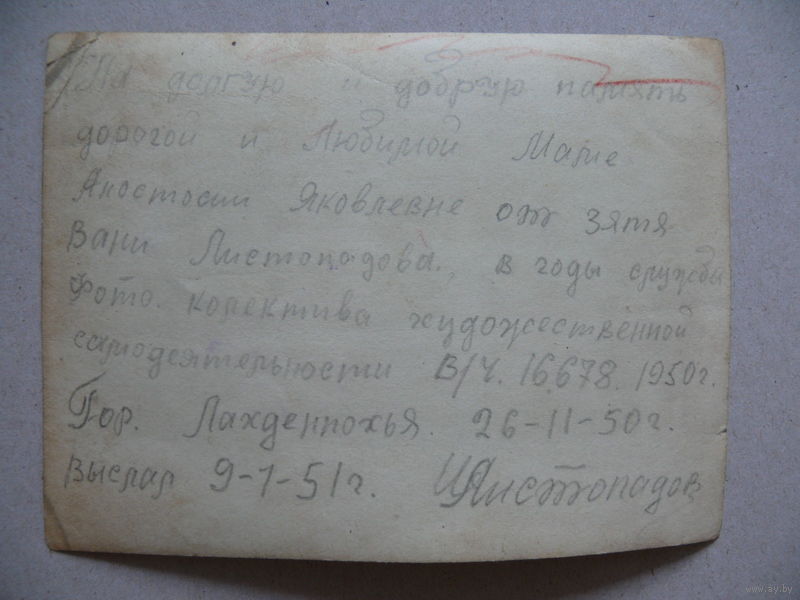 На долгую и добрую память
дорогой и Любимой Маме
Аностосии Яковлевне от зятя
Вани Листопадова, в годы службы
Фото. колектива художественной
самодеятельности В/Ч. 16.678. 1950г.
Гор. Лахденпохья. 26-11-50г.
Выслал 9-1-51г. И Листопадов
www.ay.by